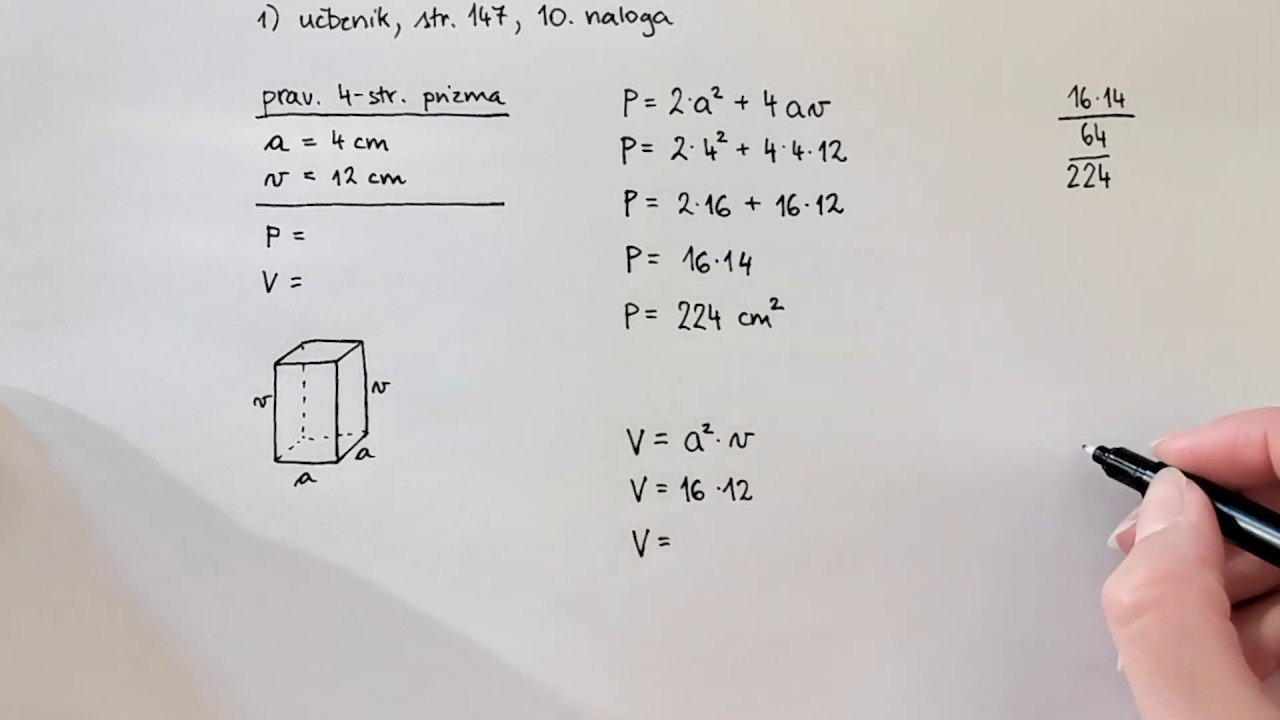 1) učbenik, str. 147, 10. naloga
prav. 4-str. prizma
a = 4 cm
v = 12 cm
P =
V =
v
v
a
a
P = 2·a² + 4av
P = 2·4² + 4·4·12
P = 2·16 + 16·12
P = 16·14
P = 224 cm²
V = a²·v
V = 16·12
V =
16·14
64
224